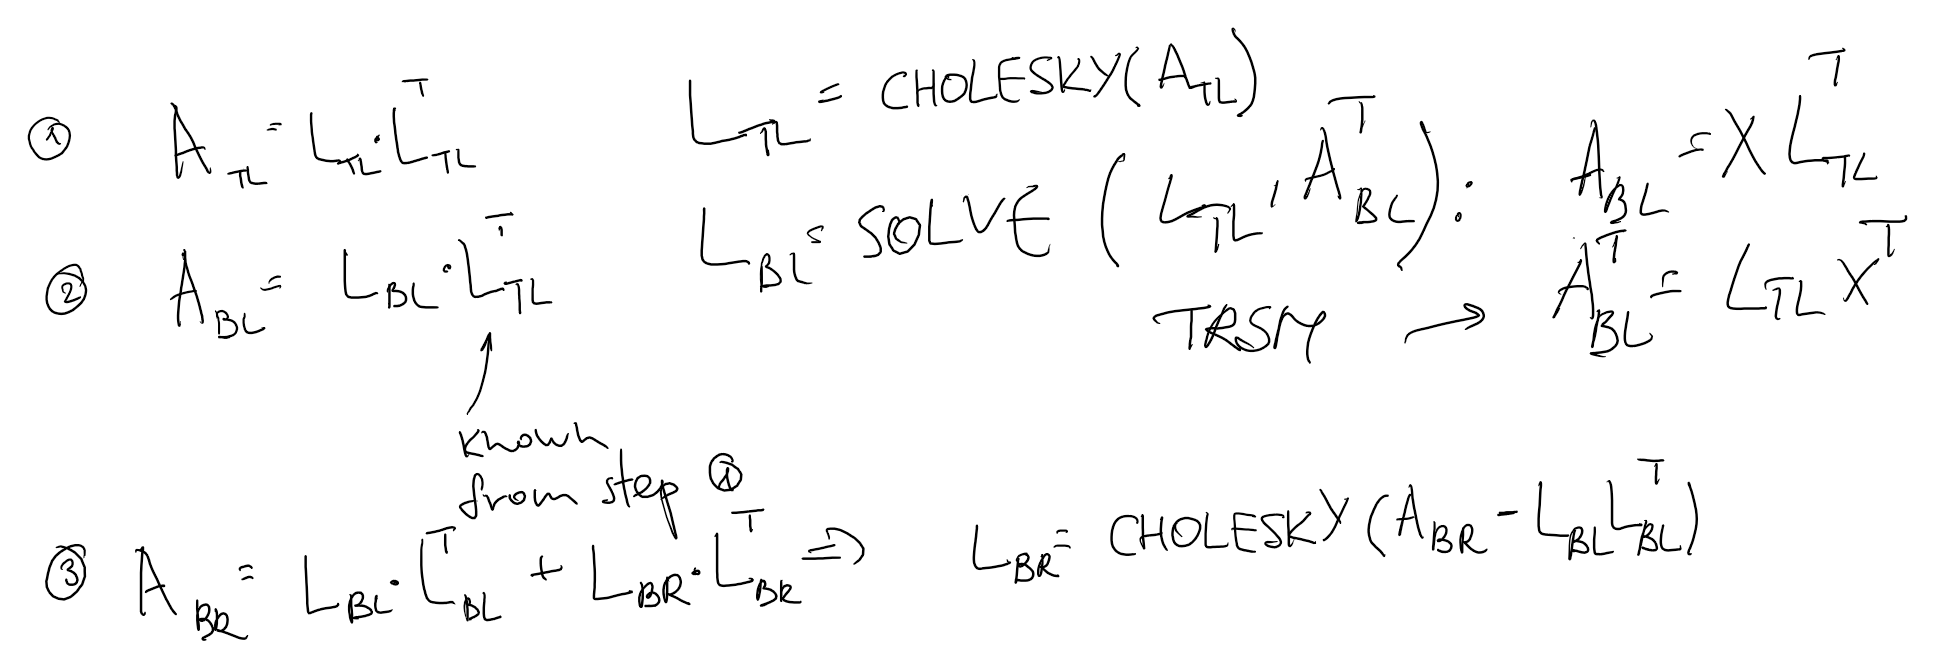 ① A_TL = L_TL · L_TL^T    L_TL = CHOLESKY(A_TL)
② A_BL = L_BL · L_TL^T    L_BL = SOLVE (L_TL, A_BL^T):    A_BL = X L_TL^T
TRSM → A_BL^T = L_TL X^T
known
from step ①
③ A_BR = L_BL · L_BL^T + L_BR · L_BR^T ⇒ L_BR = CHOLESKY(A_BR - L_BL L_BL^T)